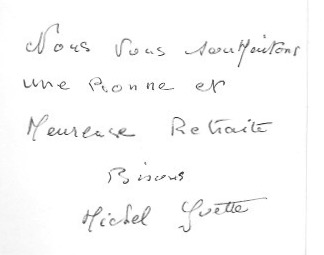 Nous Vous souhaitons
une Bonne et
Heureuse Retraite
Bisous
Michel Yvette